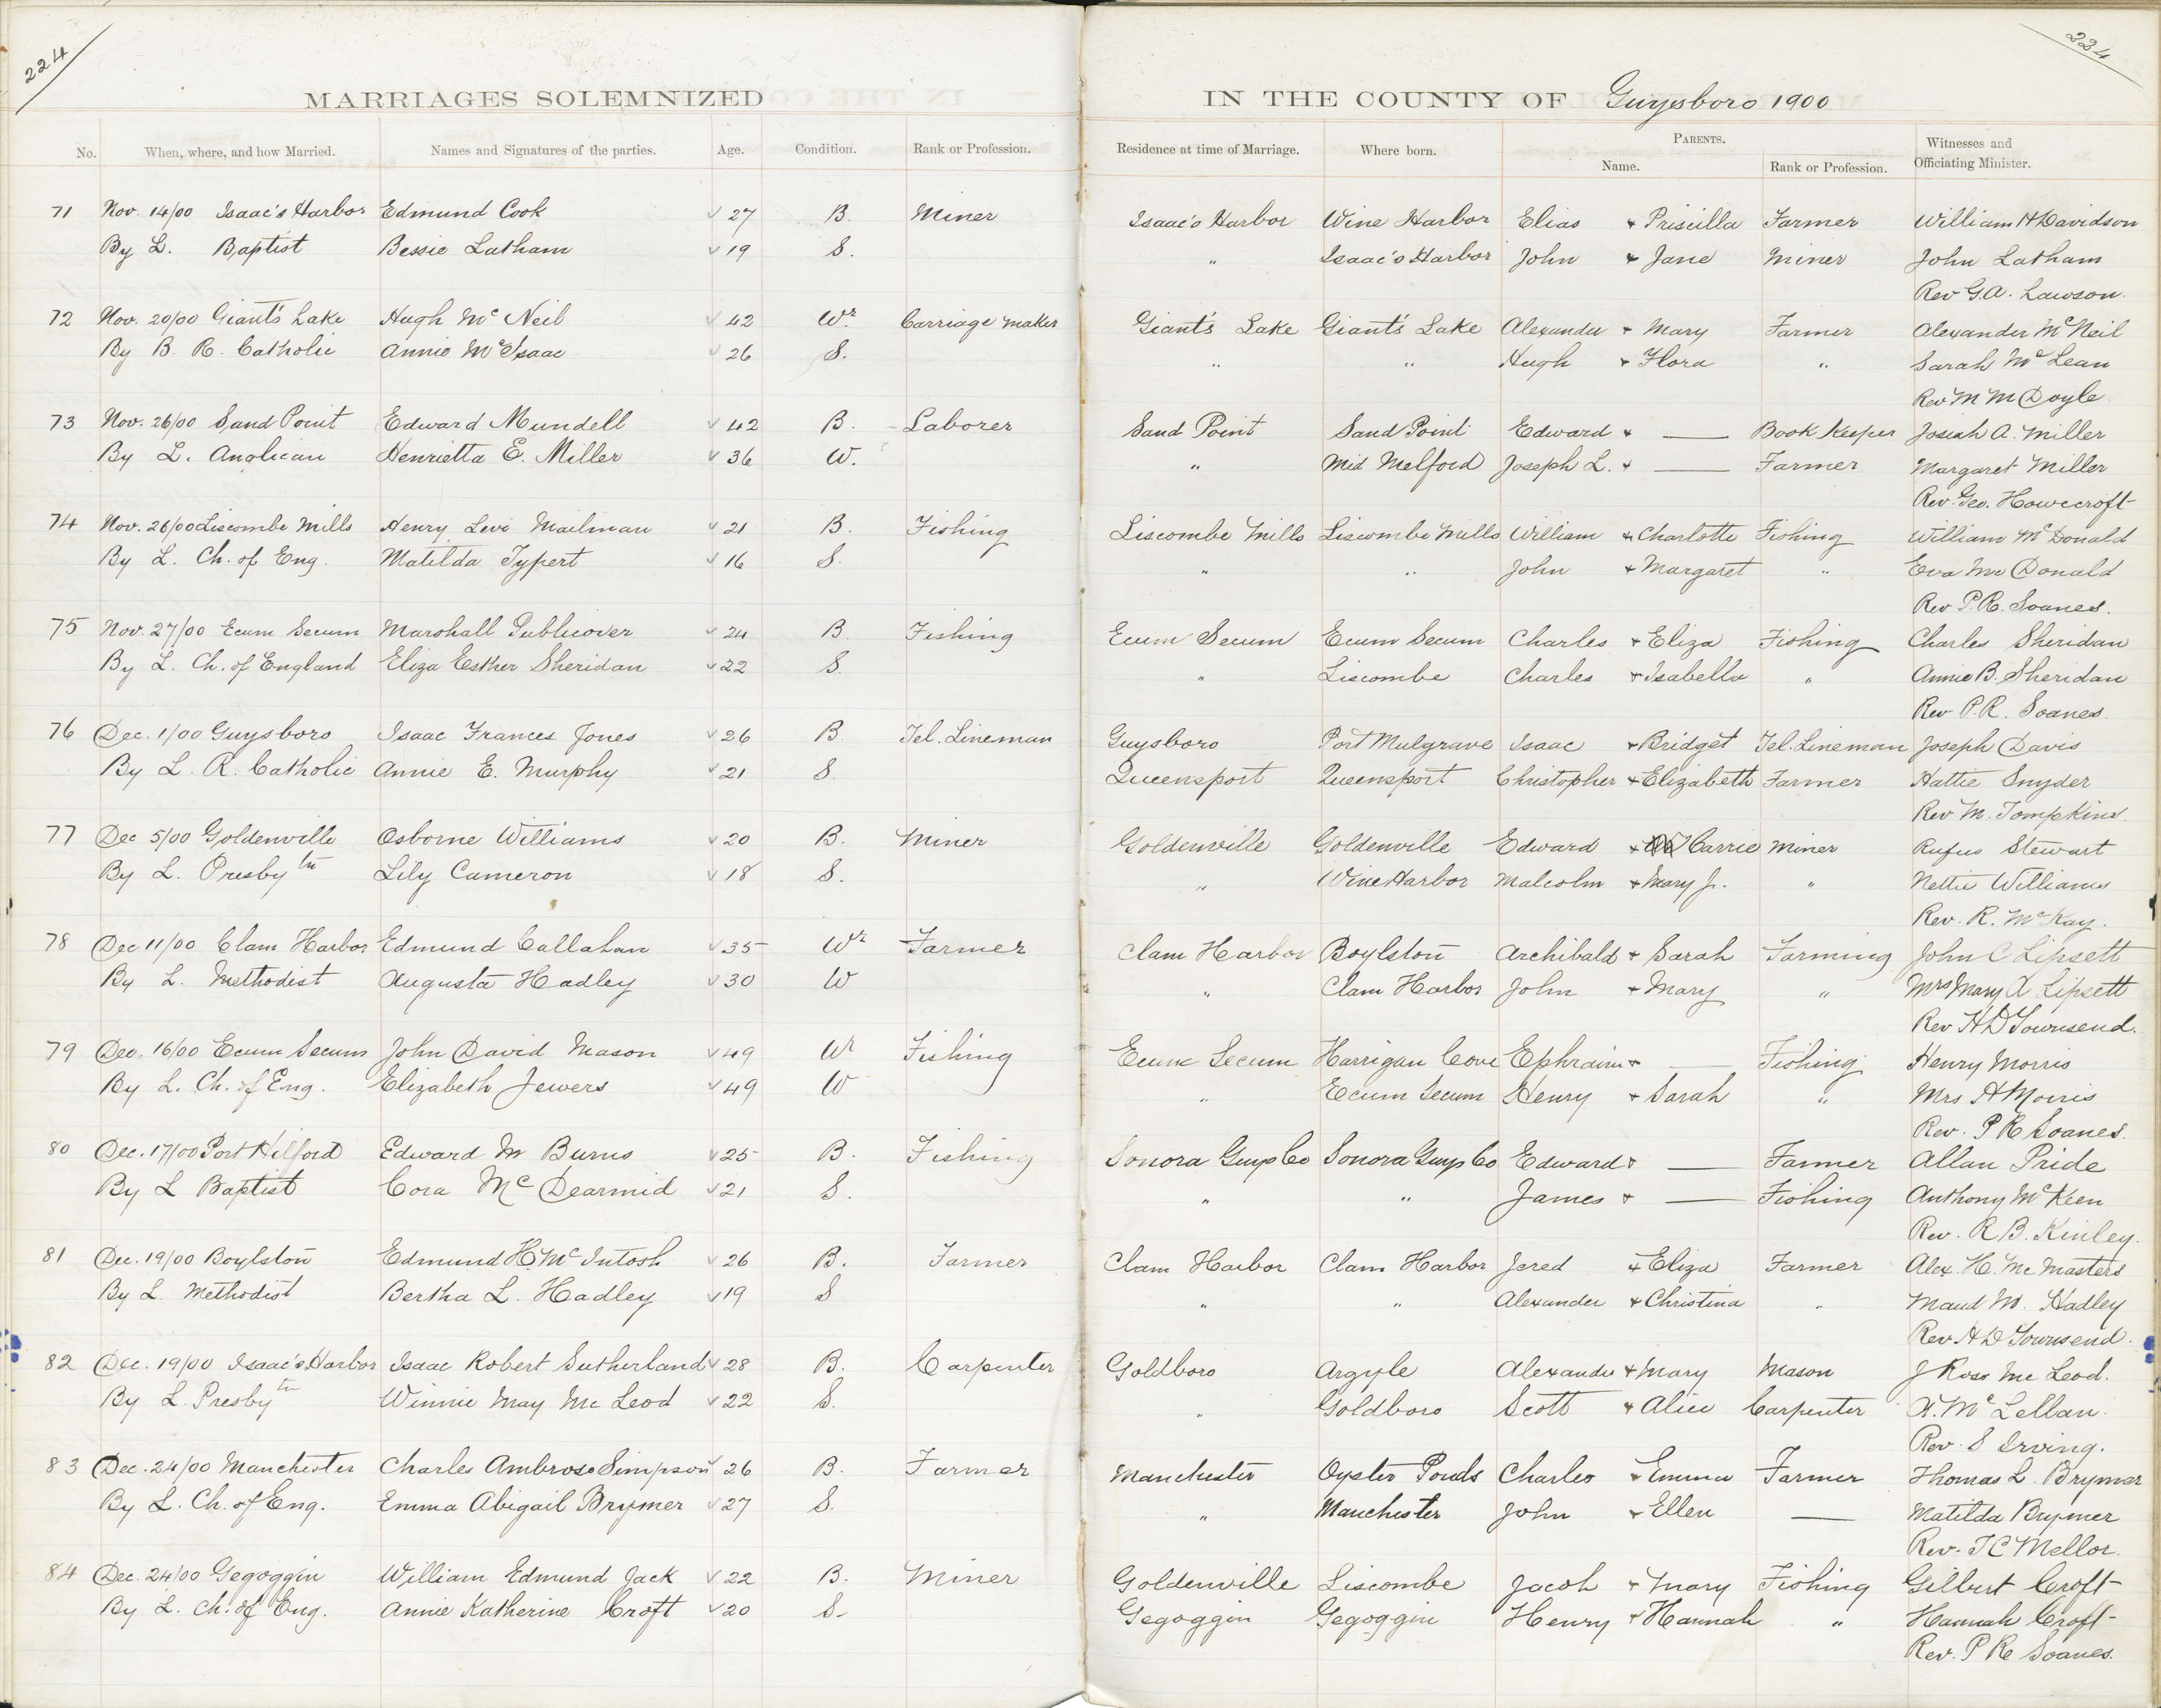 224
224
MARRIAGES SOLEMNIZED IN THE COUNTY OF Guysboro 1900
No. When, where, and how Married. Names and Signatures of the parties. Age. Condition. Rank or Profession. Residence at time of Marriage. Where born. PARENTS. Name. Rank or Profession. Witnesses and Officiating Minister.
71 Nov. 14/00 Isaac's Harbor Edmund Cook 27 B. Miner Isaac's Harbor Wine Harbor Elias + Priscilla Farmer William H Davidson
By L. Baptist Bessie Latham 19 S. " Isaac's Harbor John + Jane Miner John Latham
Rev G.A. Lawson.
72 Nov. 20/00 Giant's Lake Hugh McNeil 42 Wr. Carriage maker Giant's Lake Giant's Lake Alexander + Mary Farmer Alexander McNeil
By B. R. Catholic Annie McIsaac 26 S. " " Hugh + Flora " Sarah McLean
Rev M M Doyle
73 Nov. 26/00 Sand Point Edward Mundell 42 B. Laborer Sand Point Sand Point Edward + — Book Keeper Josiah A. Miller
By L. Anglican Henrietta E. Miller 36 W. " Mid Melford Joseph L. + — Farmer Margaret Miller
Rev. Geo. Howcroft
74 Nov. 26/00 Liscombe Mills Henry Levi Mailman 21 B. Fishing Liscombe Mills Liscombe Mills William + Charlotte Fishing William McDonald
By L. Ch. of Eng. Matilda Typert 16 S. " " John + Margaret " Eva McDonald
Rev P.R. Soanes.
75 Nov. 27/00 Ecum Secum Marshall Publicover 24 B. Fishing Ecum Secum Ecum Secum Charles + Eliza Fishing Charles Sheridan
By L. Ch. of England Eliza Esther Sheridan 22 S. " Liscombe Charles + Isabella " Annie B. Sheridan
Rev P.R. Soanes.
76 Dec. 1/00 Guysboro Isaac Frances Jones 26 B. Tel. Lineman Guysboro Port Mulgrave Isaac + Bridget Tel. Lineman Joseph Davis
By L. R. Catholic Annie E. Murphy 21 S. Queensport Queensport Christopher + Elizabeth Farmer Hattie Snyder
Rev M. Tompkins.
77 Dec 5/00 Goldenville Osborne Williams 20 B. Miner Goldenville Goldenville Edward + Carrie Miner Rufus Stewart
By L. Presbytn Lily Cameron 18 S. " Wine Harbor Malcolm + Mary J. " Nettie Williams
Rev. R. McKay.
78 Dec 11/00 Clam Harbor Edmund Callahan 35 Wr Farmer Clam Harbor Boylston Archibald + Sarah Farming John C Lipsett
By L. Methodist Augusta Hadley 30 W " Clam Harbor John + Mary " Mrs Mary A Lipsett
Rev H D Townsend.
79 Dec. 16/00 Ecum Secum John David Mason 49 Wr Fishing Ecum Secum Harrigan Cove Ephraim + — Fishing Henry Morris
By L. Ch. of Eng. Elizabeth Jewers 49 W " Ecum Secum Henry + Sarah " Mrs H Morris
Rev. P R Soanes.
80 Dec. 17/00 Port Hilford Edward M Burns 25 B. Fishing Sonora Guys Co Sonora Guys Co Edward + — Farmer Allan Pride
By L Baptist Cora McDearmid 21 S. " " James + — Fishing Anthony McKeen
Rev. R B. Kinley.
81 Dec. 19/00 Boylston Edmund H. McIntosh 26 B. Farmer Clam Harbor Clam Harbor Jered + Eliza Farmer Alex. H. McMasters
By L. Methodist Bertha L. Hadley 19 S " " Alexander + Christina " Maud M. Hadley
Rev H D Townsend.
82 Dec. 19/00 Isaac's Harbor Isaac Robert Sutherland 28 B. Carpenter Goldboro Argyle Alexander + Mary Mason J Ross McLeod.
By L. Presbytn Winnie May McLeod 22 S. " Goldboro Scott + Alice Carpenter A. McLellan.
Rev. S Irving.
83 Dec. 24/00 Manchester Charles Ambrose Simpson 26 B. Farmer Manchester Oyster Ponds Charles + Emma Farmer Thomas L. Brymer
By L. Ch. of Eng. Emma Abigail Brymer 27 S. " Manchester John + Ellen — Matilda Brymer
Rev. T C Mellor.
84 Dec. 24/00 Gegoggin William Edmund Jack 22 B. Miner Goldenville Liscombe Jacob + Mary Fishing Gilbert Croft
By L. Ch. of Eng. Annie Katherine Croft 20 S. Gegoggin Gegoggin Henry + Hannah " Hannah Croft
Rev. P R Soanes.